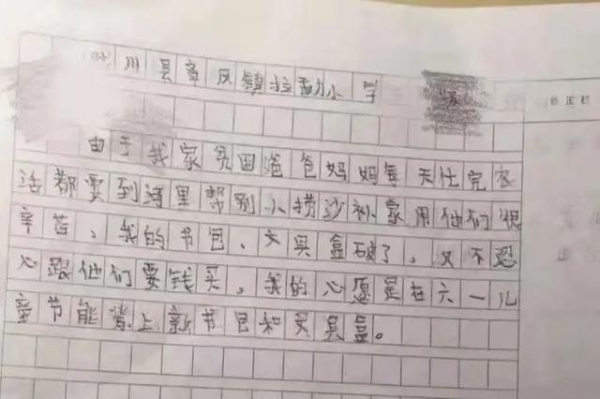 川县章凤镇拉勐小学
由于我家贫困爸爸妈妈每天仕完农
活都要到河里帮别人捞沙补家用他们很
辛苦、我的书包、文具盒破了、又不忍
心跟他们要钱买。我的心愿是在六一儿
童节能背上新书包和文具盒。